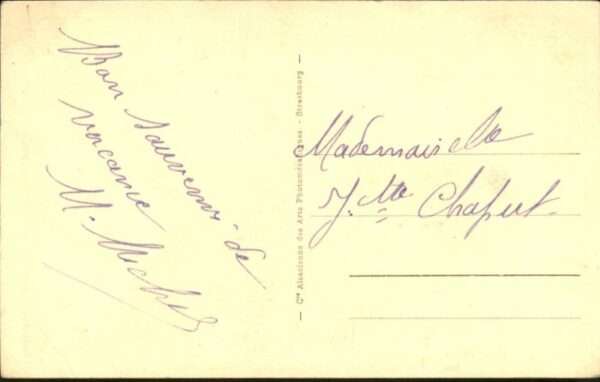 Bon souvenir de
vacance
M. Michel
— Cie Alsacienne des Arts Photomécaniques. - Strasbourg —
Mademoiselle
Chaput